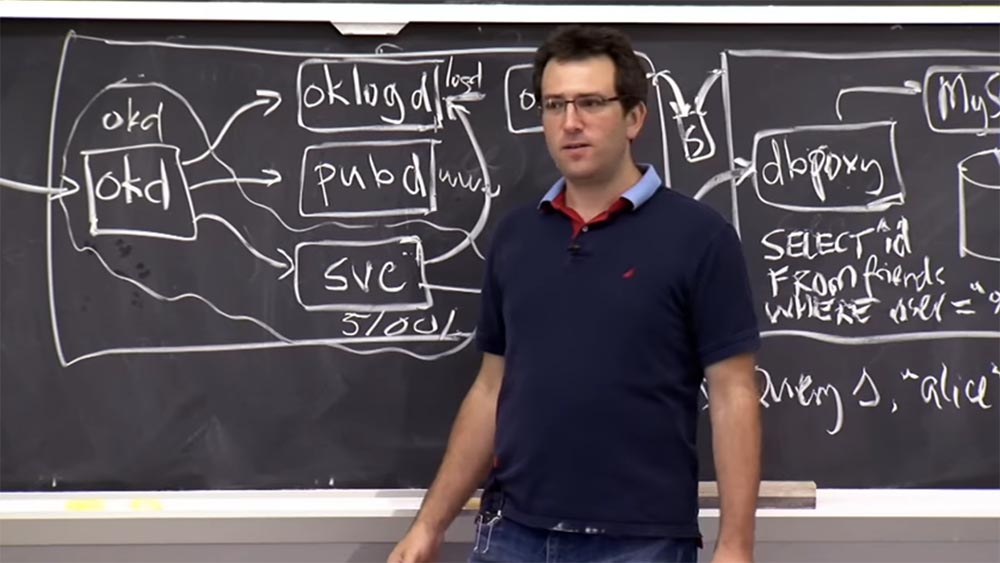 okd
okd
oklogd
logd
pubd
www
svc
dbproxy
SELECT id
FROM friends
WHERE user = "a
Query 1, "alice"